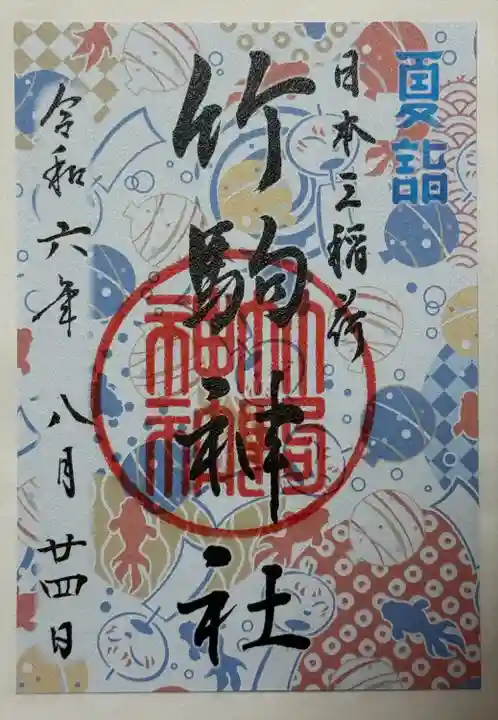 夏詣
日本三稲荷
竹駒神社
令和六年 八月 廿四日